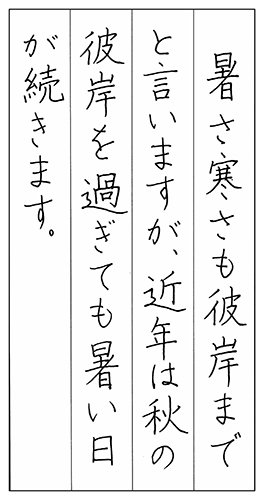 暑さ寒さも彼岸まで
と言いますが、近年は秋の
彼岸を過ぎても暑い日
が続きます。